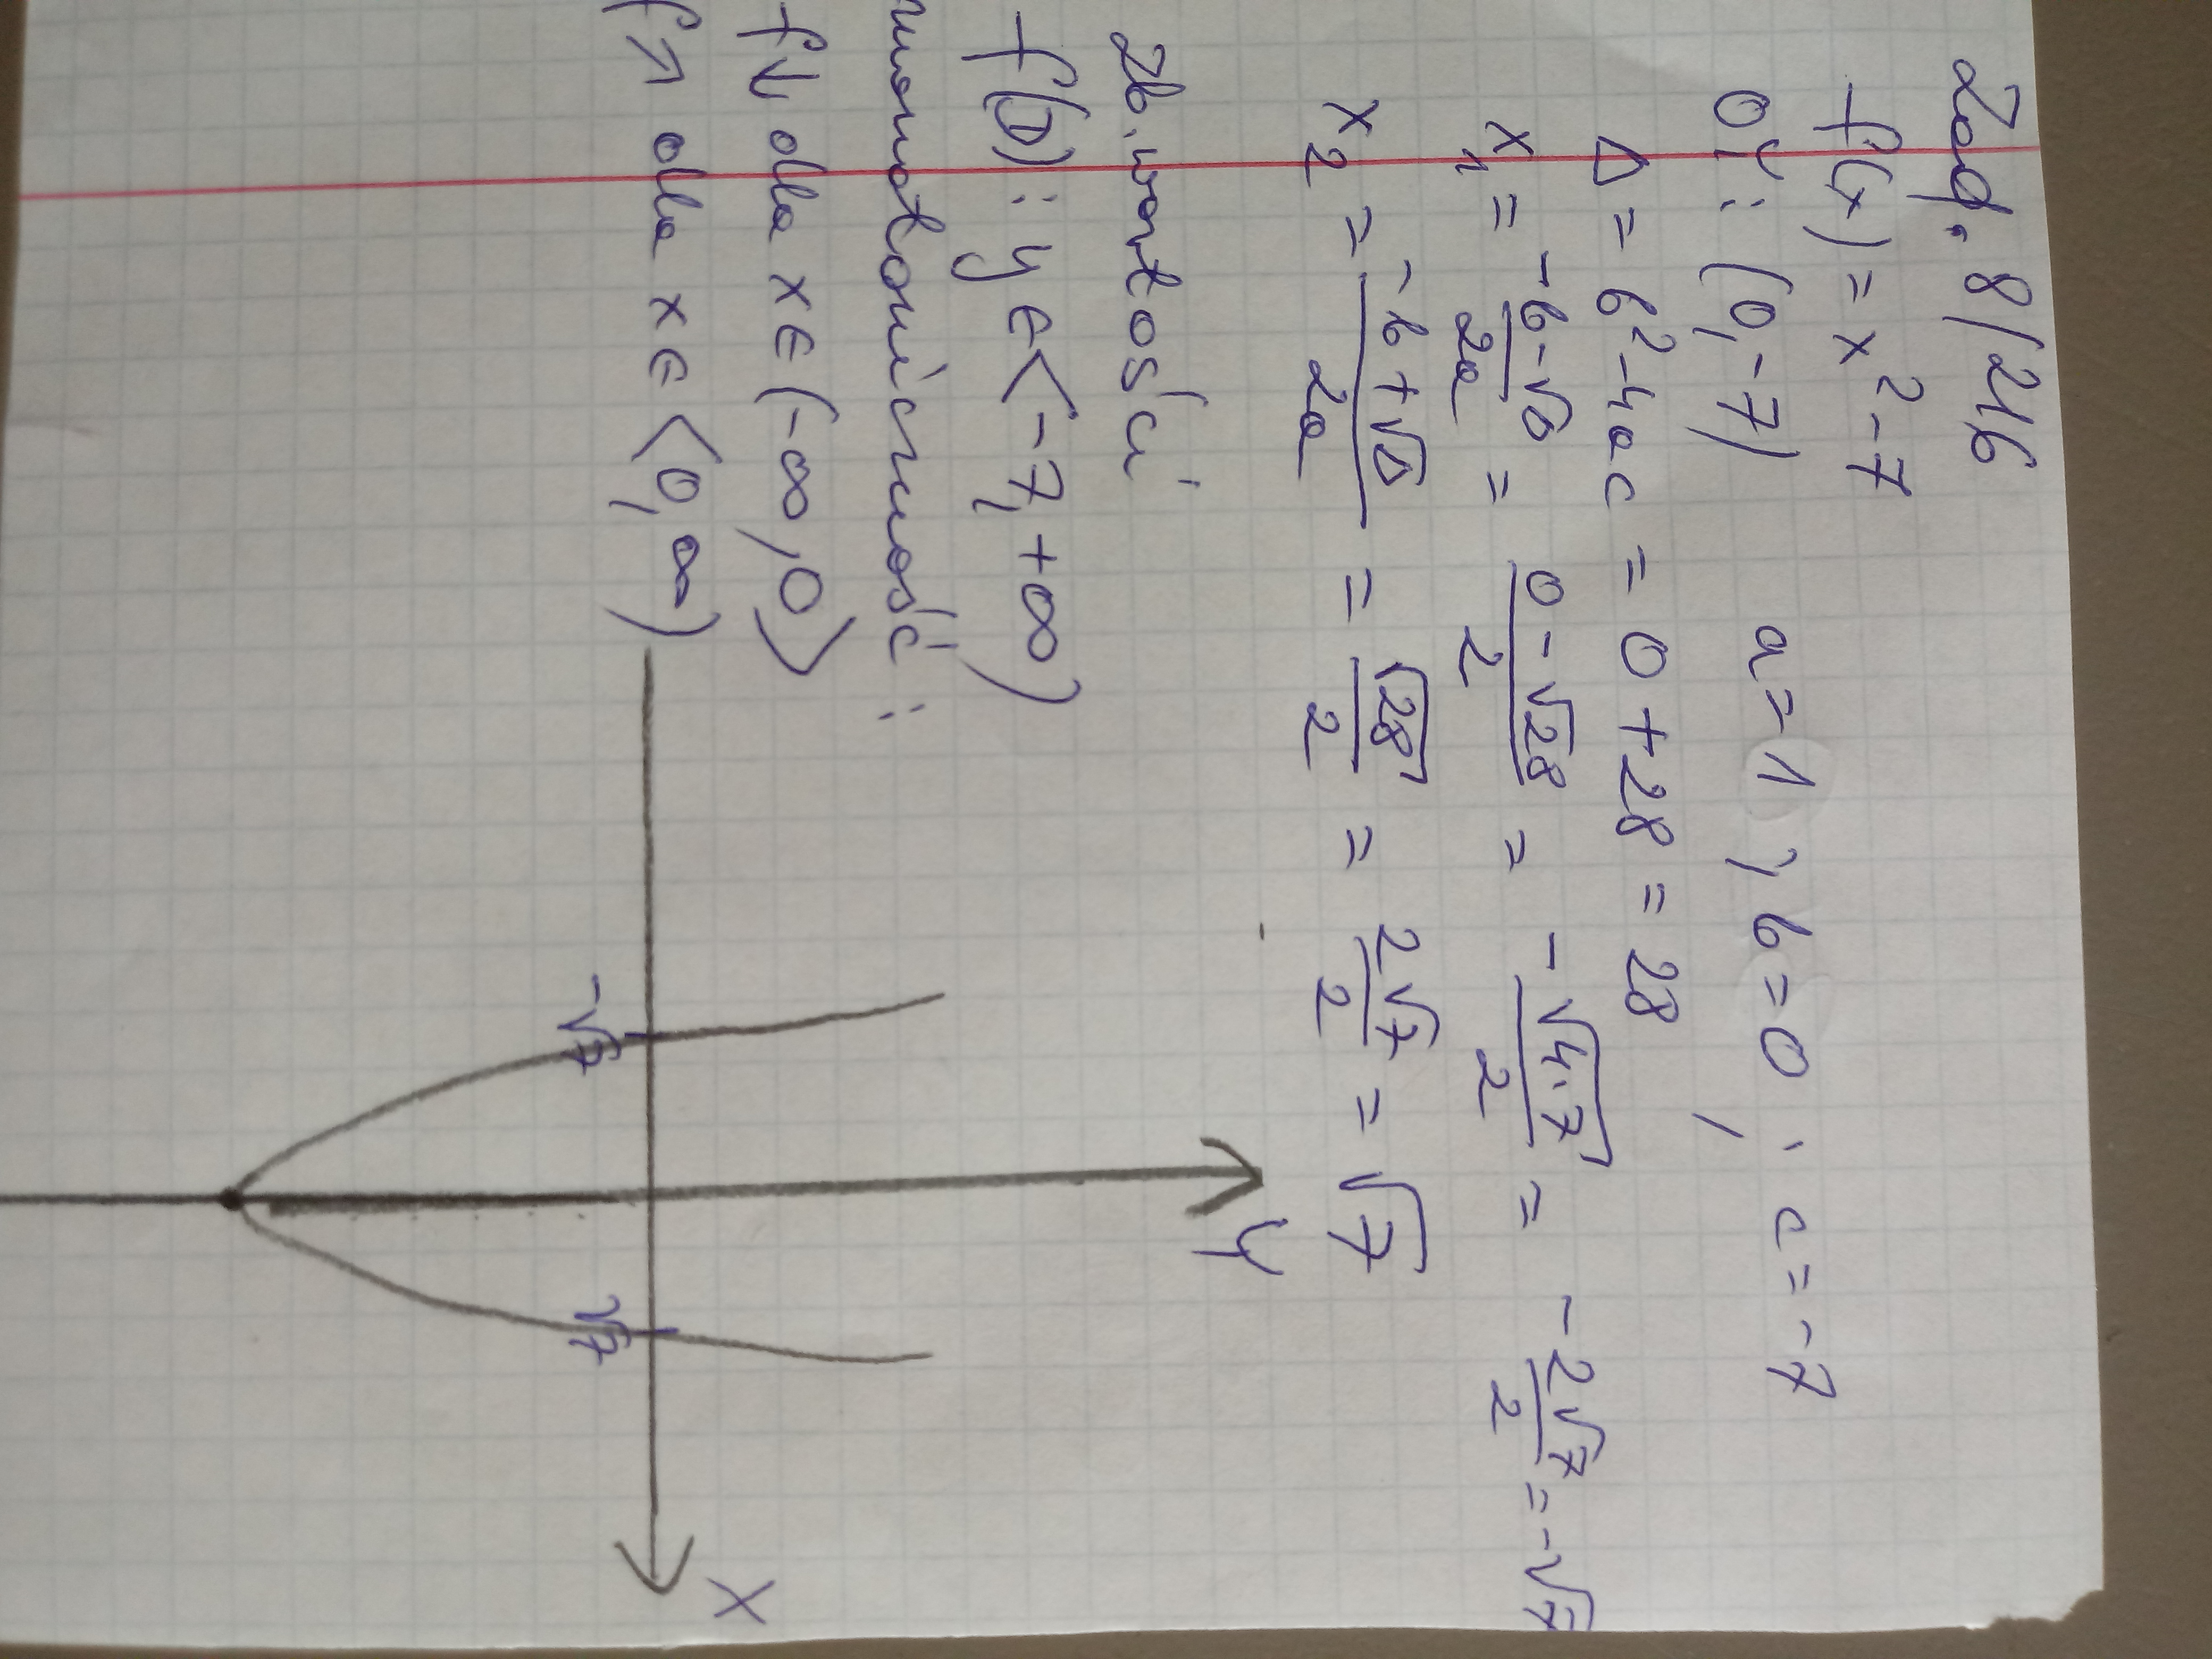 Zad. 8/216
f(x) = x² - 7
OY: (0, -7) a = 1 ; b = 0 ; c = -7
Δ = b² - 4ac = 0 + 28 = 28
x₁ = \frac{-b-√Δ}{2a} = \frac{0-√28}{2} = \frac{-√4·7}{2} = \frac{-2√7}{2} = -√7
x₂ = \frac{-b+√Δ}{2a} = \frac{√28}{2} = \frac{2√7}{2} = √7
Zb. wartości
f(D): y ∈ <-7, +∞)
monotoniczność:
f↘ dla x ∈ (-∞, 0>
f↗ dla x ∈ <0, ∞)
Y
X
-√7
√7